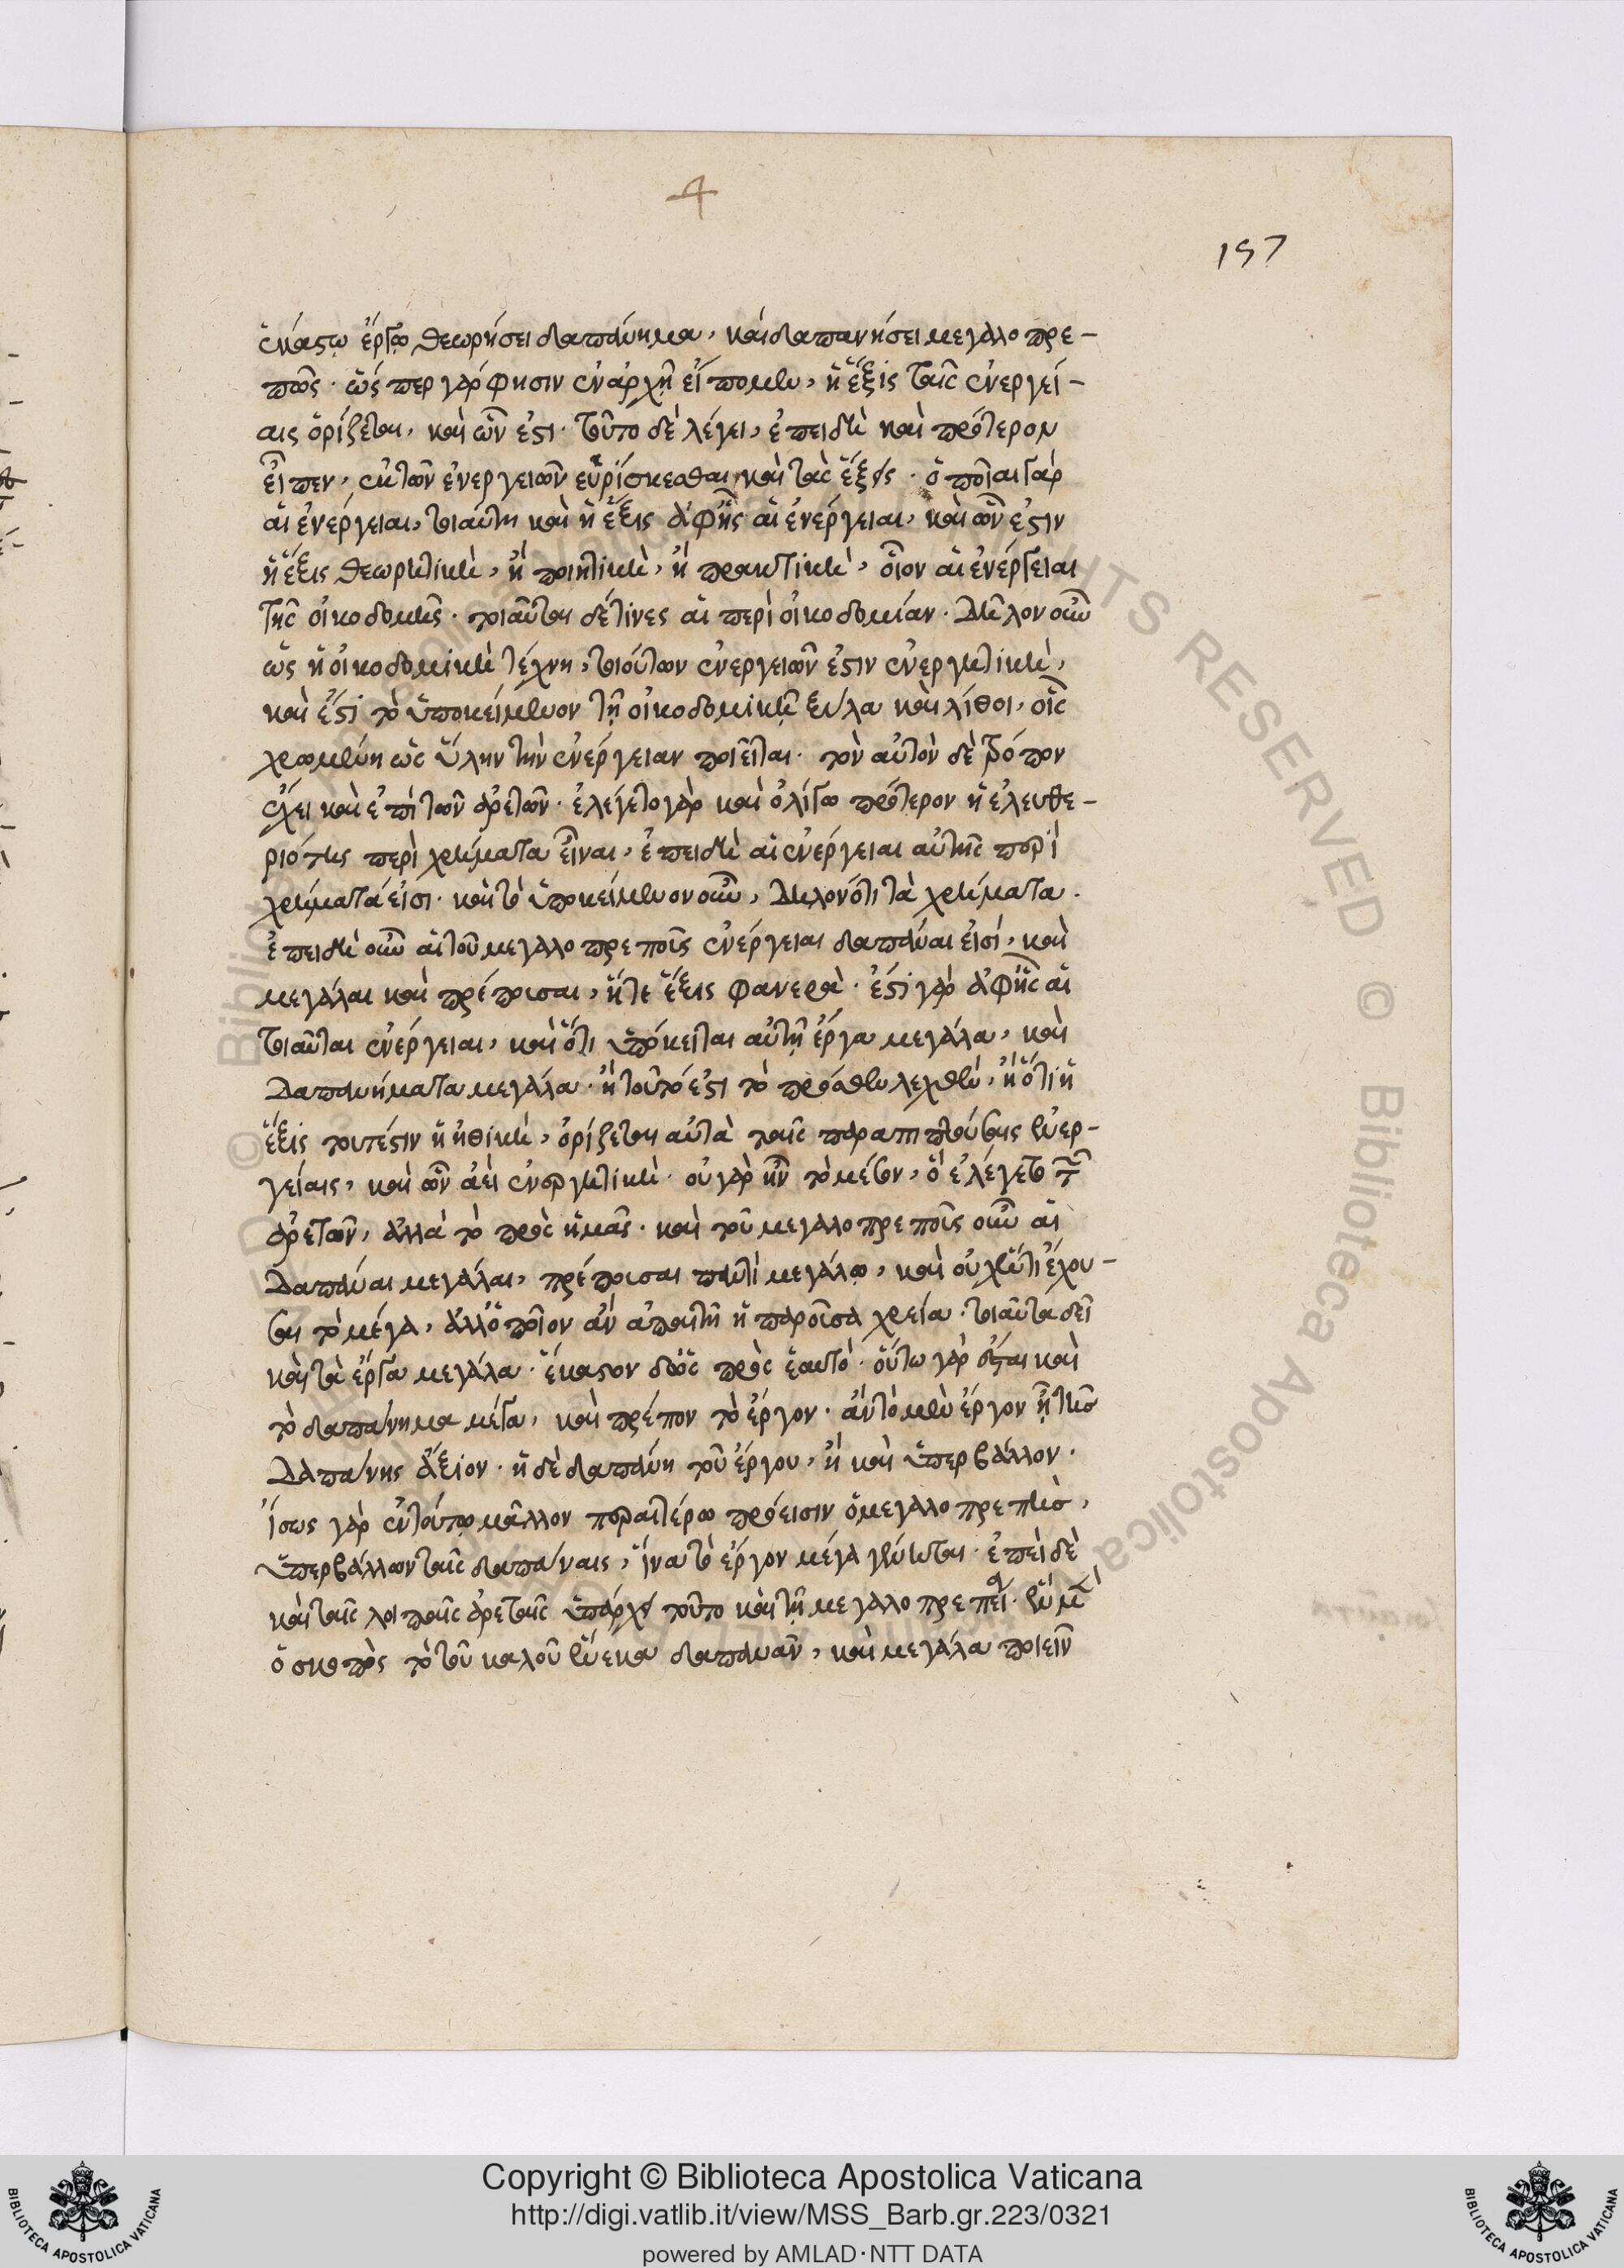 4
157
ἑκάστῳ ἔργῳ θεωρήσει δαπάνημα, καὶ δαπανήσει μεγαλοπρε-
πῶς. ὥσπερ γάρ φησιν ἐν ἀρχῇ εἴπομεν, ἡ ἕξις ταῖς ἐνεργεί-
αις ὁρίζεται, καὶ ὧν ἐστι. τοῦτο δὲ λέγει, ἐπειδὴ καὶ πρότερον
εἶπεν, ἐκ τῶν ἐνεργειῶν εὑρίσκεσθαι καὶ τὰς ἕξεις. ὁποῖαι γὰρ
αἱ ἐνέργειαι, τοιαύτη καὶ ἡ ἕξις ἀφ' ἧς αἱ ἐνέργειαι, καὶ ὧν ἐστιν
ἡ ἕξις θεωρητικὴ, ἢ ποιητικὴ, ἢ πρακτικὴ, οἷον αἱ ἐνέργειαι
τῆς οἰκοδομῆς. τοιαῦται δέ τινες αἱ περὶ οἰκοδομίαν. δῆλον οὖν
ὡς ἡ οἰκοδομικὴ τέχνη, τοιούτων ἐνεργειῶν ἐστιν ἐνεργητικὴ,
καὶ ἔστι τὸ ὑποκείμενον τῇ οἰκοδομικῇ ξύλα καὶ λίθοι, οἷς
χρωμένη ὡς ὕλην τὴν ἐνέργειαν ποιεῖται. τὸν αὐτὸν δὲ τρόπον
ἔχει καὶ ἐπὶ τῶν ἀρετῶν. ἐλέγετο γὰρ καὶ ὀλίγῳ πρότερον ἡ ἐλευθε-
ριότης περὶ χρήματα εἶναι, ἐπειδὴ αἱ ἐνέργειαι αὐτῆς περὶ
χρήματά εἰσι. καὶ τὸ ὑποκείμενον οὖν, δηλονότι τὰ χρήματα.
ἐπειδὴ οὖν αἱ τοῦ μεγαλοπρεποῦς ἐνέργειαι δαπάναι εἰσί, καὶ
μεγάλαι καὶ πρέπουσαι, ἥ τε ἕξις φανερὰ. ἔστι γὰρ ἀφ' ἧς αἱ
τοιαῦται ἐνέργειαι, καὶ ὅτι ὑπόκειται αὐτῇ ἔργα μεγάλα, καὶ
δαπανήματα μεγάλα. ἢ τοῦτό ἐστι τὸ πρόσθεν λεχθὲν, ἢ ὅτι ἡ
ἕξις τουτέστιν ἡ ἠθικὴ, ὁρίζεται αὐτὰ ταῖς παραπιπτούσαις ἐνερ-
γείαις, καὶ ὧν ἀεὶ ἐνεργητικὴ. οὐ γὰρ ἦν τὸ μέσον, ὃ ἐλέγετο τῶν
ἀρετῶν, ἀλλὰ τὸ πρὸς ἡμᾶς. καὶ τοῦ μεγαλοπρεποῦς οὖν αἱ
δαπάναι μεγάλαι, πρέπουσαι παντὶ μεγάλῳ, καὶ οὐχ ὅτι ἔχου-
σαι τὸ μέγα, ἀλλ' ὁποῖον ἂν ἀπαιτῇ ἡ παροῦσα χρεία. τοιαῦτα δεῖ
καὶ τὰ ἔργα μεγάλα. ἕκαστον ὡς πρὸς ἑαυτό. οὕτω γὰρ ἔσται καὶ
τὸ δαπάνημα μέγα, καὶ πρέπον τὸ ἔργον. ἂν τὸ μὲν ἔργον ᾖ τῆς
δαπάνης ἄξιον. ἡ δὲ δαπάνη τοῦ ἔργου, ἢ καὶ ὑπερβάλλον.
ἴσως γὰρ ἐν τούτῳ μᾶλλον περαιτέρω πρόεισιν ὁ μεγαλοπρεπὴς,
ὑπερβάλλων ταῖς δαπάναις, ἵνα τὸ ἔργον μέγα γένηται. ἐπεὶ δὲ
καὶ ταῖς λοιπαῖς ἀρεταῖς ὑπάρχει τοῦτο καὶ τῇ μεγαλοπρεπείᾳ.
ὁ σκοπὸς τὸ τοῦ καλοῦ ἕνεκα δαπανᾶν, καὶ μεγάλα ποιεῖν
Copyright © Biblioteca Apostolica Vaticana
http://digi.vatlib.it/view/MSS_Barb.gr.223/0321
powered by AMLAD·NTT DATA